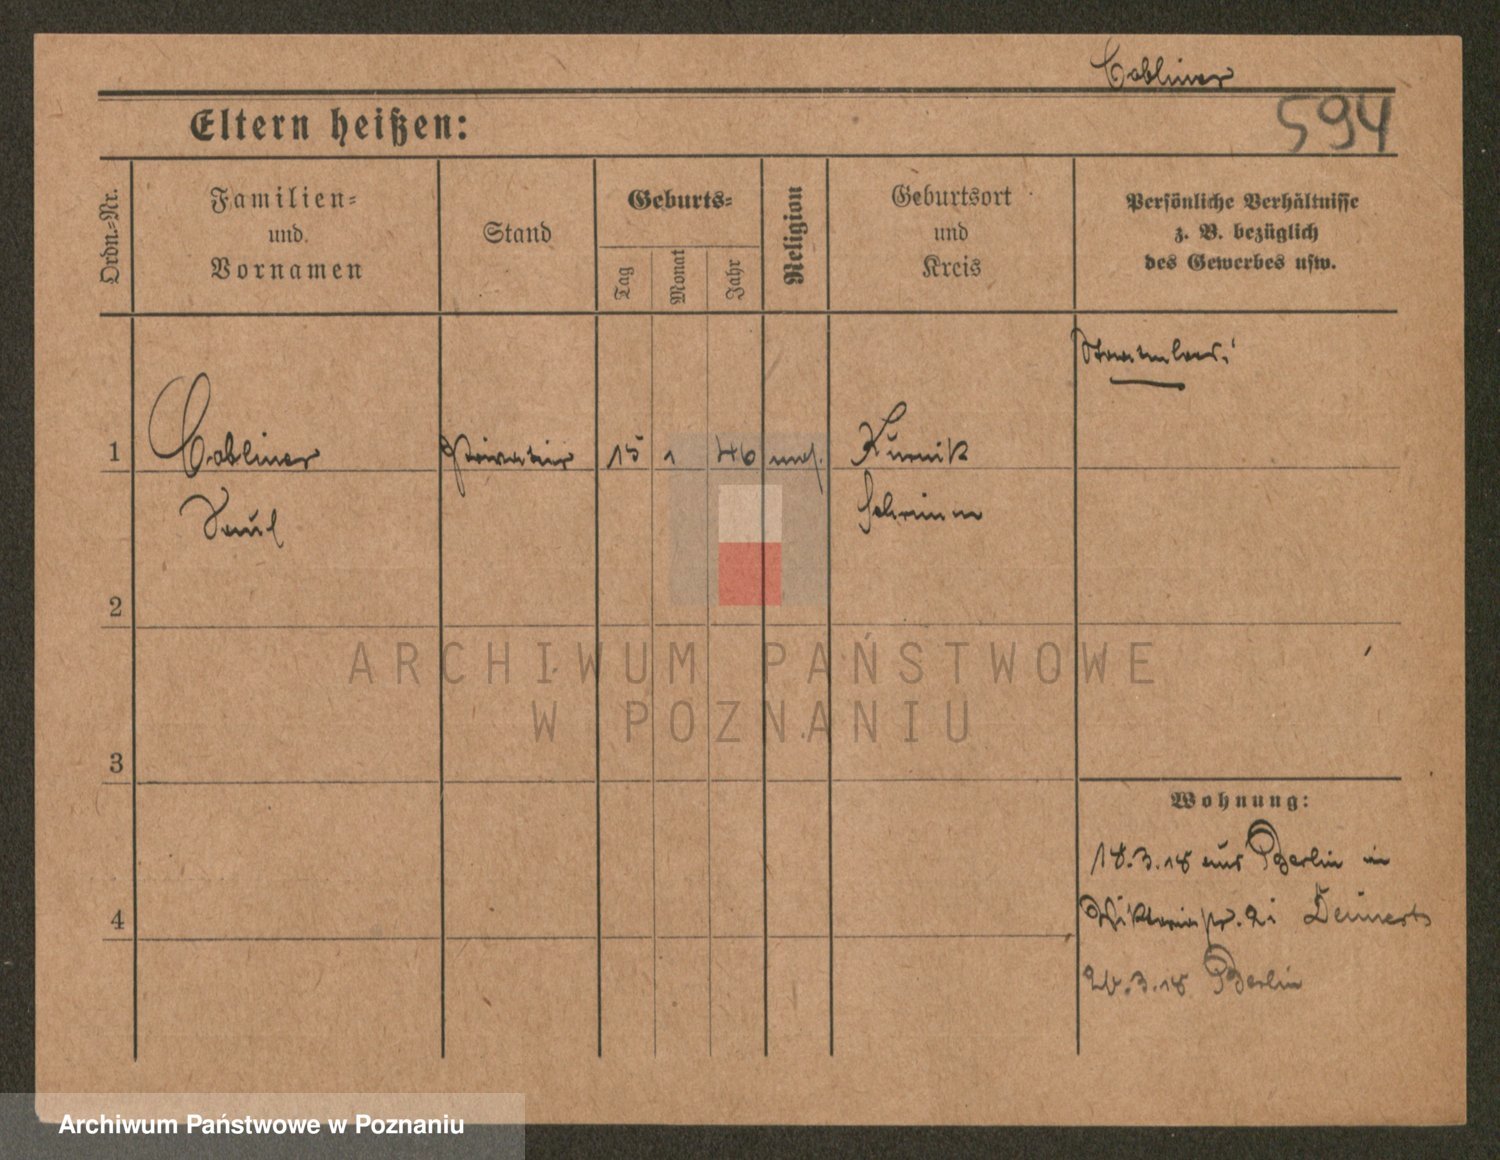 Cobliner
594
Eltern heißen:
Ordn.-Nr.
Familien-
und
Vornamen
Stand
Geburts-
Tag
Monat
Jahr
Religion
Geburtsort
und
Kreis
Persönliche Verhältnisse
z. B. bezüglich
des Gewerbes usw.
1
Cobliner
Privatier
15
1
46
mos.
Kurnik
Saul
Schrimm
2
ARCHIWUM PAŃSTWOWE
W POZNANIU
3
Wohnung:
18.3.18 aus Berlin in
4
26.3.18 Berlin
Archiwum Państwowe w Poznaniu